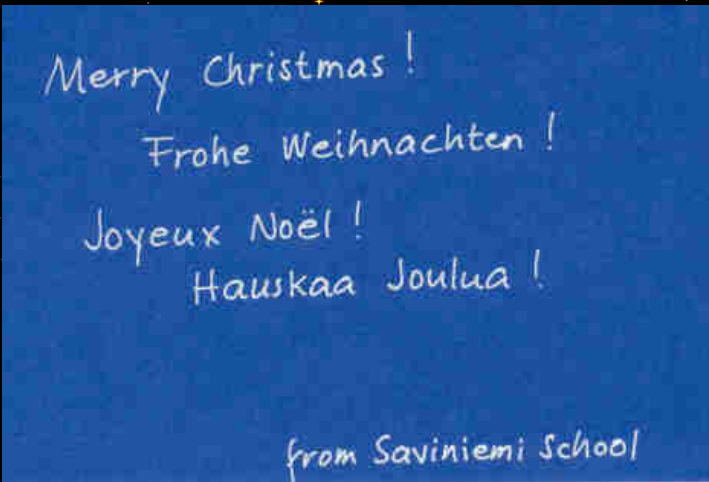 Merry Christmas!
Frohe Weihnachten!
Joyeux Noël!
Hauskaa Joulua!
from Saviniemi School